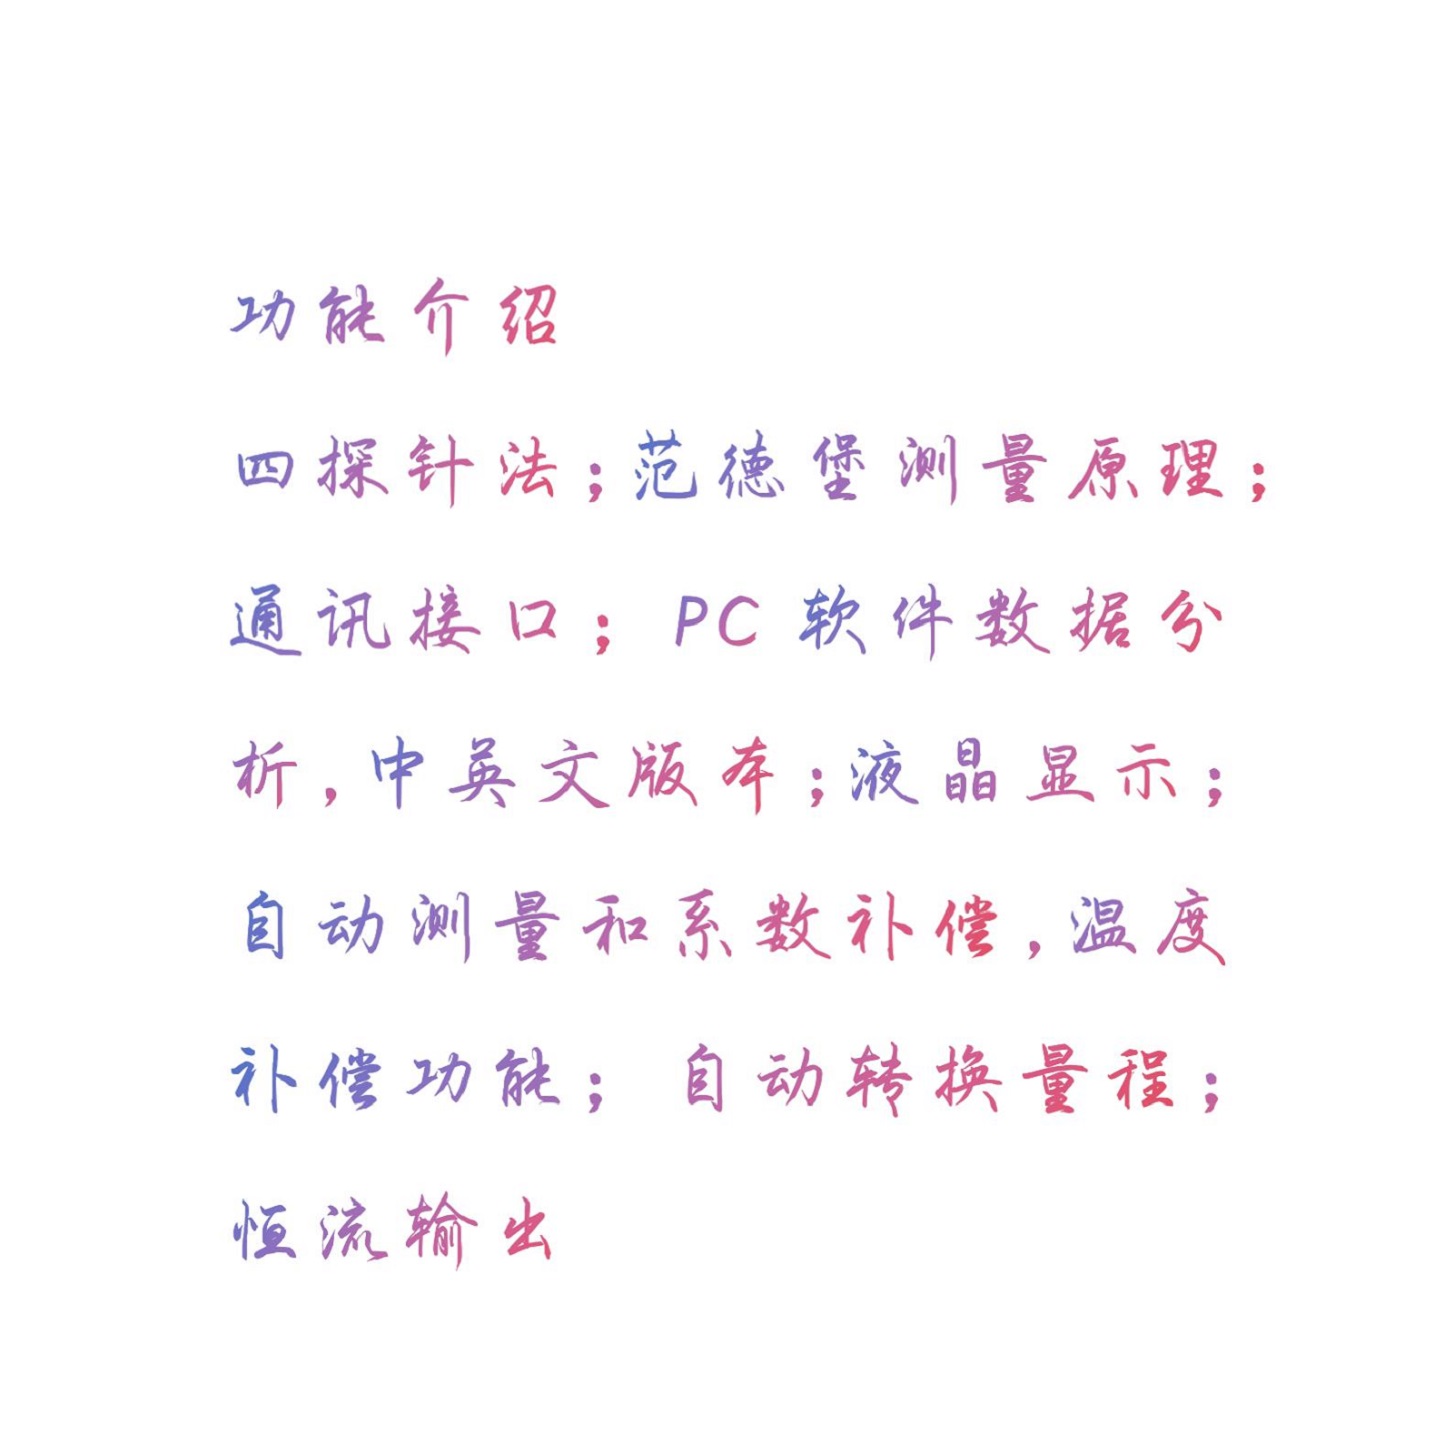 功能介绍
四探针法；范德堡测量原理；
通讯接口；PC 软件数据分
析，中英文版本；液晶显示；
自动测量和系数补偿，温度
补偿功能；自动转换量程；
恒流输出